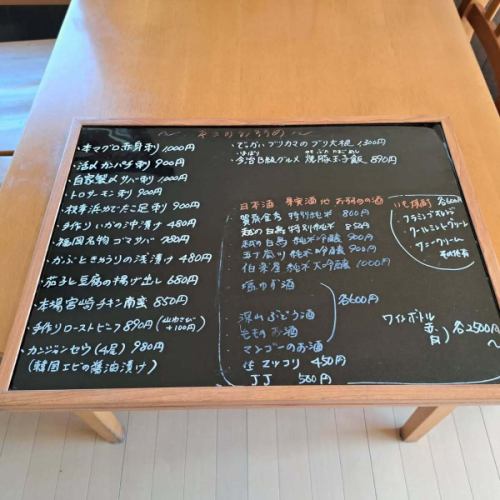 ・本マグロ赤身刺 1000円
・活〆カンパチ刺 900円
・自家製〆サバ刺 1000円
・トロサーモン刺 900円
・枝幸浜ゆでたこ足刺 900円
・手作りいかの沖漬け 480円
・福岡名物ゴマサバ 780円
・かぶときゅうりの浅漬け 480円
・茄子と豆腐の揚げ出し 680円
・本場宮崎チキン南蛮 850円
・手作りローストビーフ 890円 (山わさび +100円)
・カンジャンセウ(4尾) 980円
(韓国エビの醤油漬け)
・でっかいブリカマのブリ大根 1300円
・今治B級グルメ 焼豚玉子飯 890円
日本酒 果実酒 他 お勧めの酒
賀茂金秀 特別純米 800円
白鳥 特別純米 850円
白鳥 純米吟醸 900円
純米吟醸 900円
伯楽星 純米大吟醸 1000円
ゆず酒
深山ぶどう酒
ももの酒
マンゴーのお酒
各600円
生マッコリ 450円
JJ 500円
各600円
フラミンゴオレンジ
クールミントグリーン
ワインボトル
赤 各2500円
〜